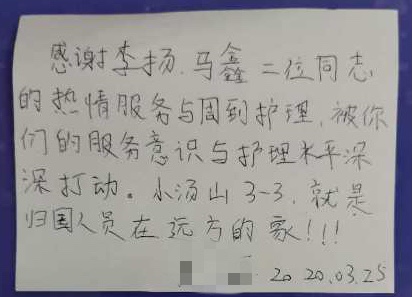 感谢李扬、马鑫二位同志
的热情服务与周到护理，被你
们的服务意识与护理水平深
深打动。小汤山3-3，就是
归国人员在远方的家!!!
2020.03.25